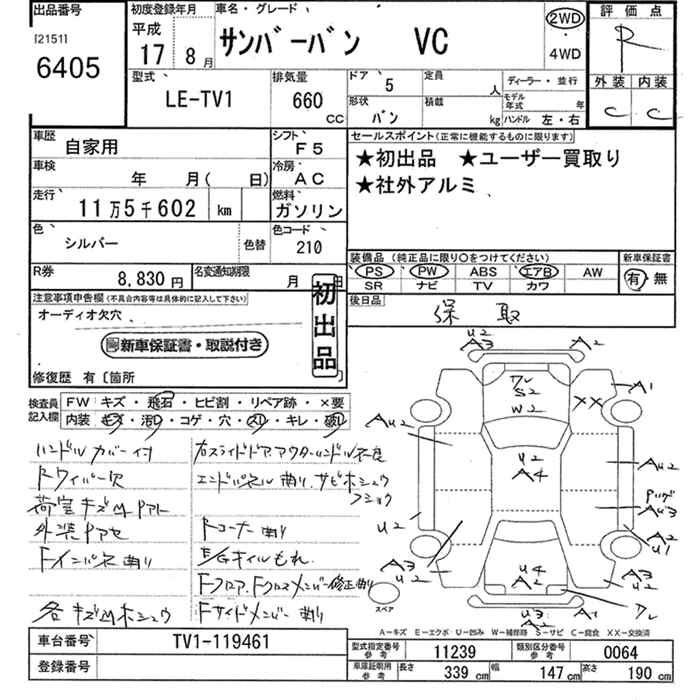 出品番号 初度登録年月 車名・グレード 2WD 評価点
[21511] 平成 サンバーバン VC ・ R
6405 17年 8月 4WD
型式 排気量 ドア 5 定員 人 ディーラー・並行 外装 内装
LE-TV1 660 CC 形状 バン 積載 kg モデル年式 年 ハンドル 左・右 C C
車歴 自家用 シフト F5 セールスポイント(正常に機能するものに限ります)
車検 年 月( 日) 冷房 AC ★初出品 ★ユーザー買取り
走行 11万5千602 km 燃料 ガソリン ★社外アルミ
色 シルバー 色替 色コード 210
装備品 (純正品に限り○をつけてください) 新車保証書
R券 8,830円 名変通知期限 月 日 PS PW ABS エアB AW 有・無
SR ナビ TV カワ
注意事項申告欄(不具合内容等は具体的に記入して下さい) 初出品 後日品 保 取
オーディオ欠穴
新車保証書・取説付き
修復歴 有〔箇所
検査員記入欄 FW キズ・飛石・ヒビ割・リペア跡・×要
内装 キズ・汚レ・コゲ・穴・スレ・キレ・破レ
ハンドルカバー付 右スライドドアアウターハンドル不良
Rワイパー欠 エンドパネル曲り、サビホシュウ
フショク
外装
Rコーナー曲り
Fインパネ曲り E/Gオイルもれ
Fフロア、Fクロスメンバー修正曲り
各キズ凹ホシュウ Fサイドメンバー曲り
U2 A3 A2
フレ S2 W2 XX A1
AU2 U2 A4 AU2
AU3
U2 A2 U1
A3 U2 U4 A2 A3 U2
スペア U3 A2 A1 フレ
A-キズ E-エクボ U-凹み W-補修跡 S-サビ C-腐食 XX-交換済
車台番号 TV1-119461 型式指定番号 参考 11239 類別区分番号 参考 0064
登録番号 車庫証明用 参考 長さ 339 cm 幅 147 cm 高さ 190 cm